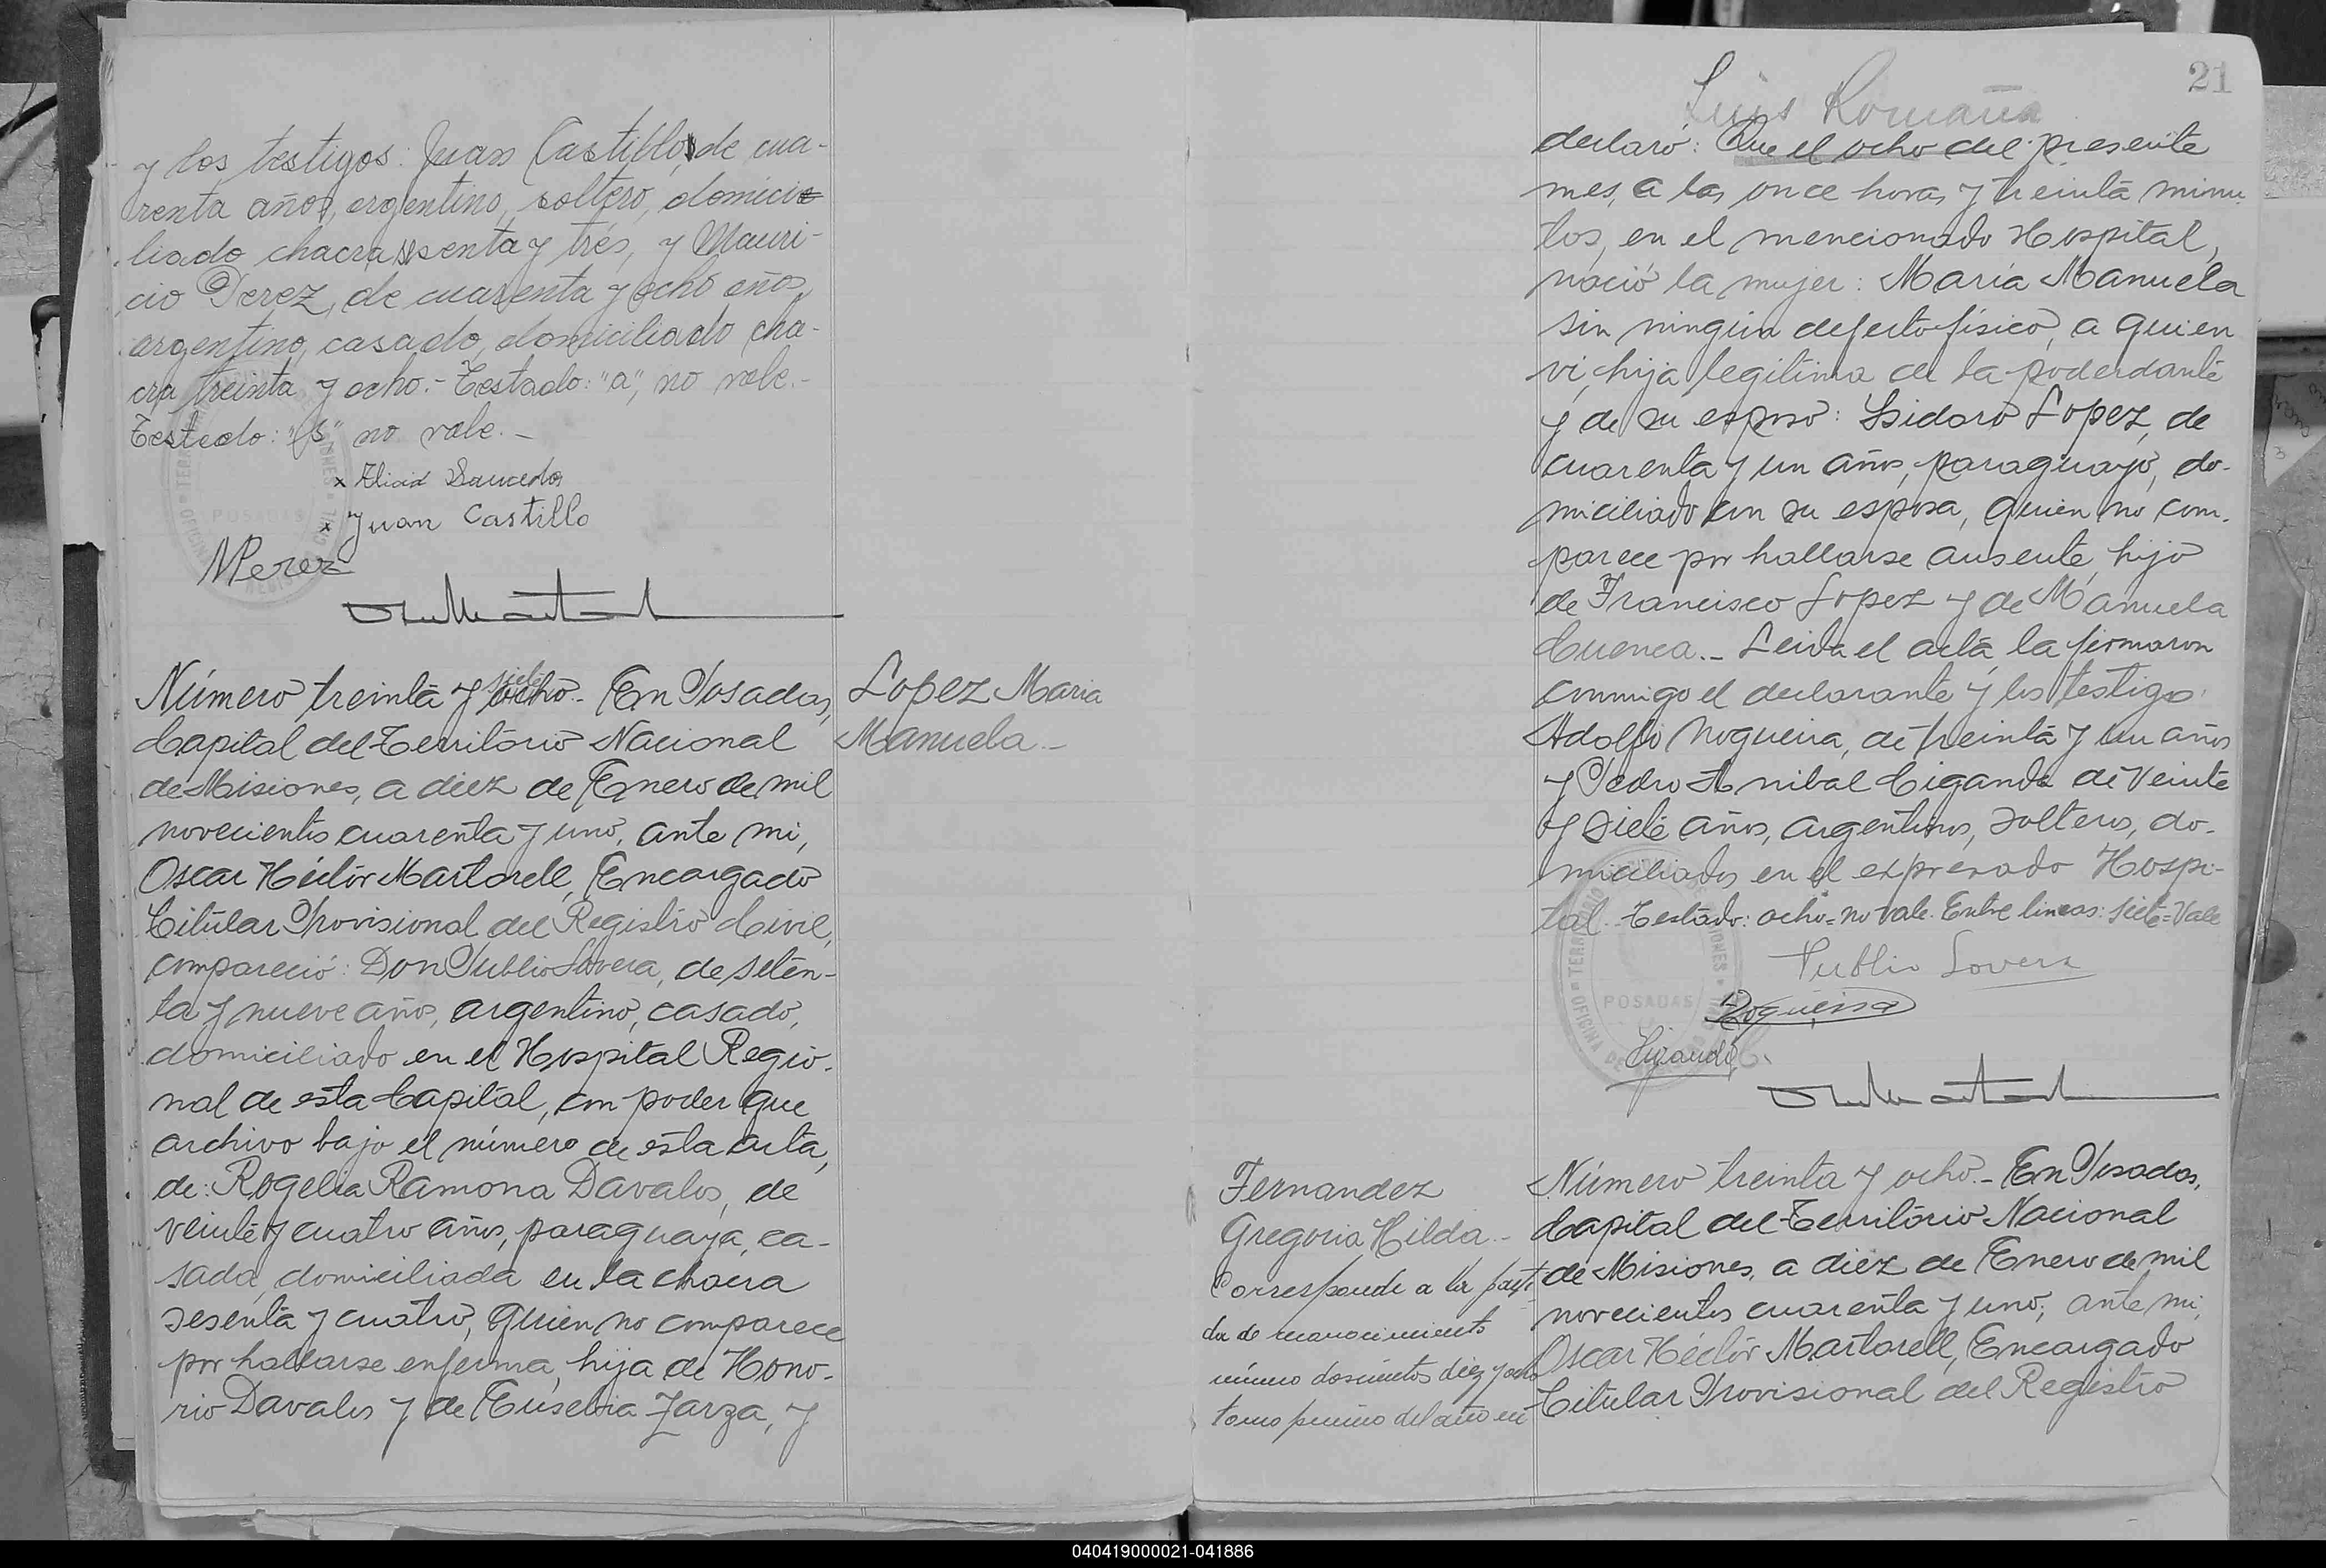 y los testigos: Juan Castillo, de cua-
renta años, argentino, soltero, domici
liado chacra senta y trés, y Mauri-
cio Perez, de cuarenta y ocho años,
argentino, casado, domiciliado cha-
cra treinta y ocho.- Testado: "a", no vale.-
Testado: "s", no vale.-
x Saucedo
x Juan Castillo
MPerez
OFICINA REGISTRO CIVIL
POSADAS
siete
Número treinta y ocho.- En Posadas,
Capital del Territorio Nacional
de Misiones, a diez de Enero de mil
novecientos cuarenta y uno, ante mi,
Oscar Héctor Martorell, Encargado
Titular Provisional del Registro Civil,
compareció: Don Publio Lovera, de seten-
ta y nueve años, argentino, casado,
domiciliado en el Hospital Regio-
nal de esta Capital, con poder que
archivo bajo el número de esta acta,
de: Rogelia Ramona Davalos, de
veinte y cuatro años, paraguaya, ca-
sada, domiciliada en la chacra
sesenta y cuatro, quien no comparece
por hallarse enferma, hija de Hono-
rio Davalos y de Eusebia Zarza, y
Lopez Maria
Manuela.-
21
Luis Romaña
declaró: Que el ocho del presente
mes, a las once horas y treinta minu
tos, en el mencionado Hospital,
nació la mujer: María Manuela
sin ningún defecto físico, a quien
vi, hija legitima de la poderdante
y de su esposo: Isidoro Lopez, de
cuarenta y un años, paraguayo, do-
miciliado con su esposa, quien no com-
parece por hallarse ausente, hijo
de Francisco Lopez y de Manuela
Cuenca.- Leida el acta, la firmaron
conmigo el declarante y los testigos
Adolfo Nogueira, de treinta y un años
y Pedro Anibal Ciganda de veinte
y siete años, argentinos, solteros, do-
miciliados en el expresado Hospi-
tal.- Testado: ocho=no vale. Entre lineas: siete=Vale
Publio Lovera
Nogueira
OFICINA DE
POSADAS
Fernandez
Gregoria Hilda.-
Corresponde a la parti
da de reconocimiento
número doscientos diez y ocho
tomo primero del año en
Número treinta y ocho.- En Posadas,
Capital del Territorio Nacional
de Misiones, a diez de Enero de mil
novecientos cuarenta y uno, ante mi,
Oscar Héctor Martorell, Encargado
Titular Provisional del Registro
040419000021-041886